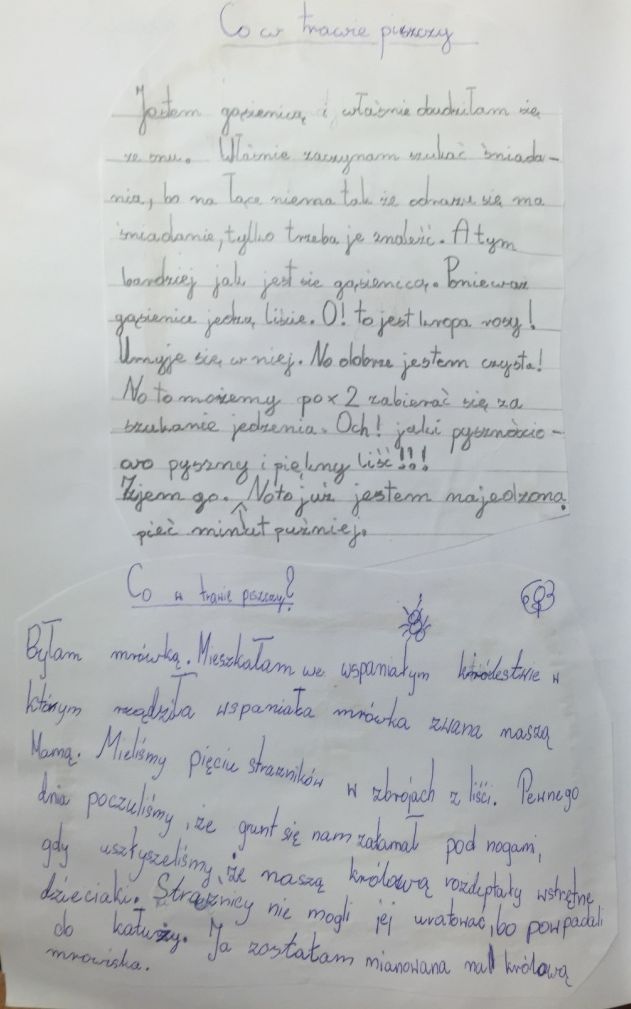 Co w trawie piszczy
Jestem gąsienicą i właśnie obudziłam się
ze snu. Właśnie zaczynam szukać śniada-
nia, bo na łące niema tak że odrazu się ma
śniadanie, tylko trzeba je znaleźć. A tym
bardziej jak jest sie gąsienicą. Ponieważ
gąsienice jedzą liście. O! to jest kropa rosy!
Umyje się w niej. No dobrze jestem czysta!
No to możemy po x 2 zabierać się za
szukanie jedzenia. Och! jaki pysznościo-
wo pyszny i piękny liść!!!
Zjem go. No to już jestem najedzona.
pieć minut puźniej.
Co w trawie piszczy?
Byłam mrówką. Mieszkałam we wspaniałym królestwie w
którym rządziła wspaniała mrówka zwana naszą
Mamą. Mieliśmy pięciu strażników w zbrojach z liści. Pewnego
dnia poczuliśmy, że grunt się nam załamał pod nogami,
gdy usztyszeliśmy, że naszą królową rozdeptały wstrętne
dzieciaki. Strażnicy nie mogli jej uratować, bo powpadali
do kałuży. Ja zostałam mianowana na królową
mrowiska.